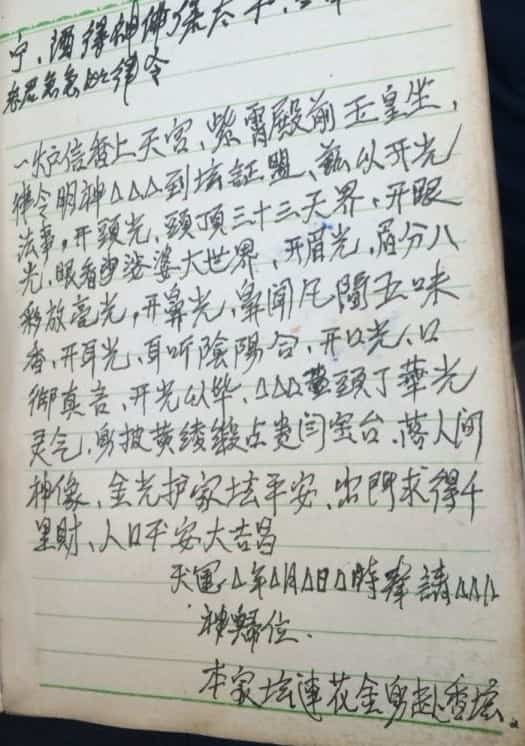 宁、酒得神佛保太平、
急急如律令
一炉信香上天宫、紫霄殿前玉皇坐,
律令明神△△△到坛証盟、兹从开光
法事,开頭光、頭頂三十三天界、开眼
光,眼看婆婆大世界、开眉光,眉分八
彩放亮光,开鼻光,鼻聞凡間五味
香,开耳光、耳听陰陽合、开口光、口
御真言、开光以毕、△△△頭丁華光
灵气、身披黄綾緞占贵闫宝台、落人间
神像、金光护家坛平安、出門求得千
里財、人口平安大吉昌
天運△年△月△日△時奉請△△△
神歸位.
本家坛連花金身赴香坛。